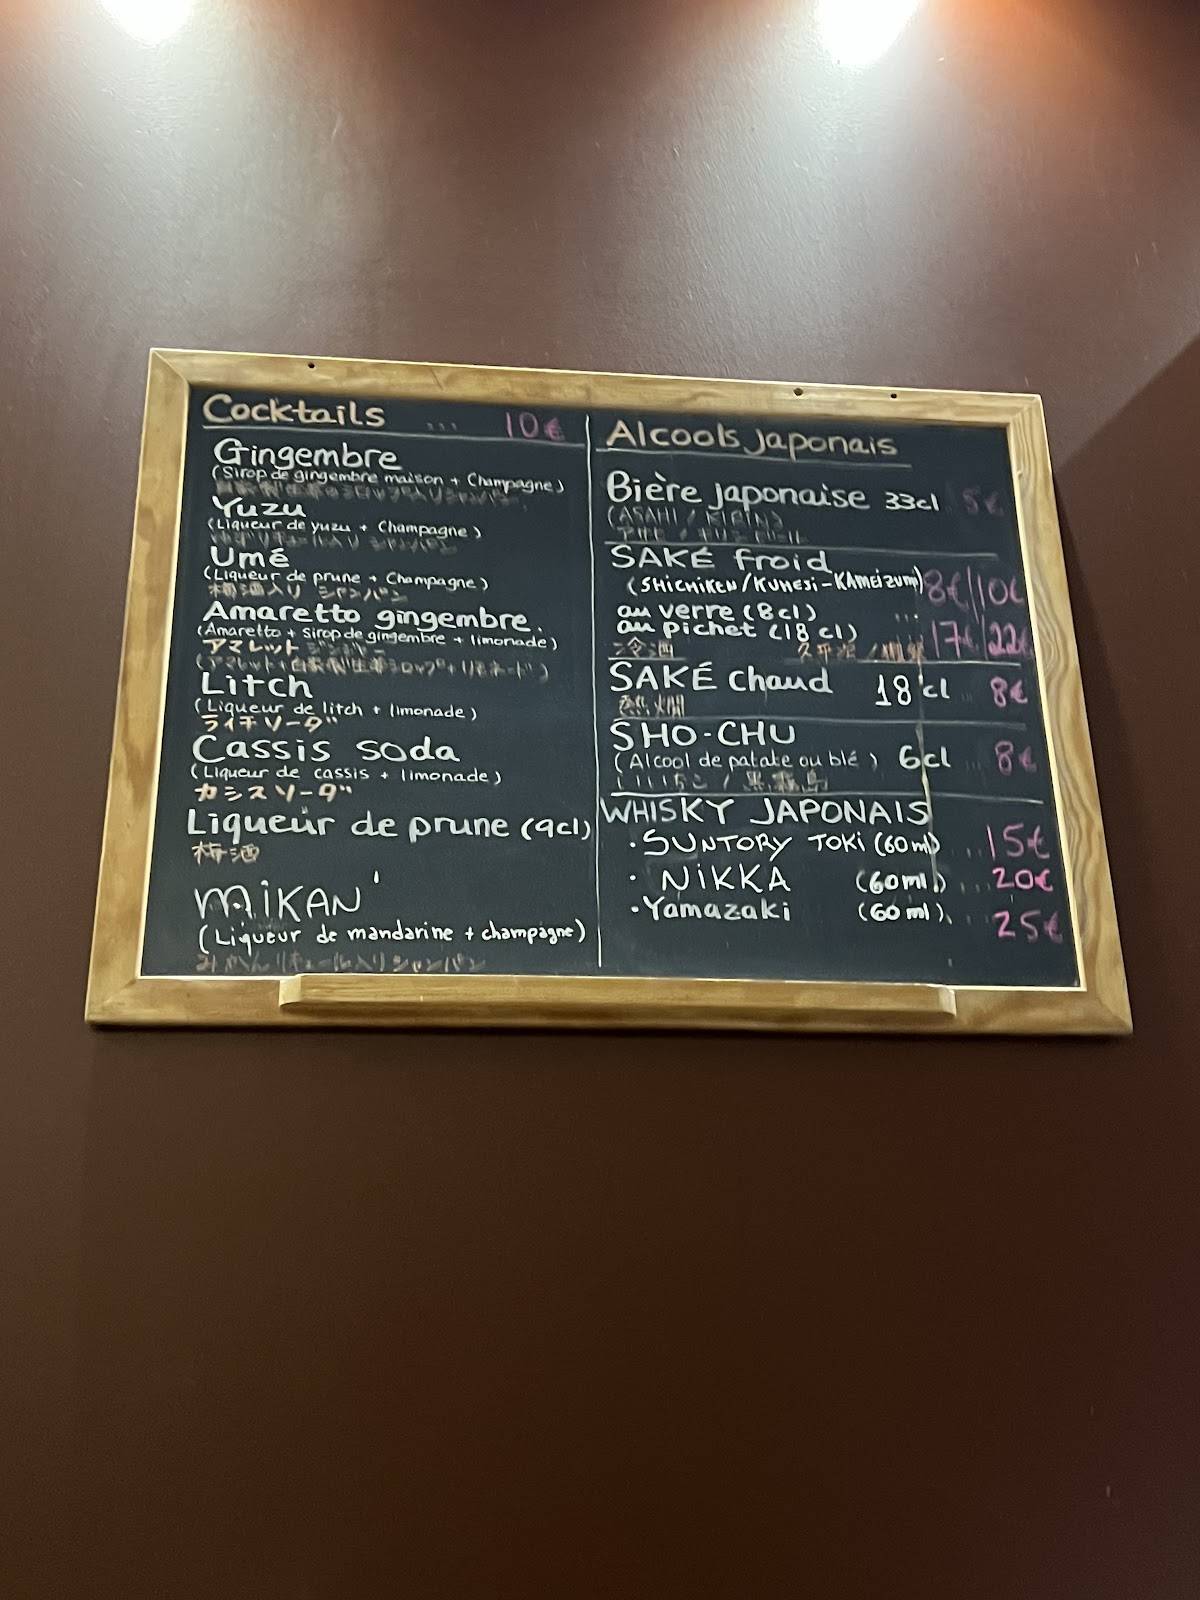 Cocktails ... 10€
Gingembre
(Sirop de gingembre maison + Champagne)
Yuzu
(Liqueur de yuzu + Champagne)
Umé
(Liqueur de prune + Champagne)
梅酒入り シャンパン
Amaretto gingembre.
(Amaretto + sirop de gingembre + limonade)
アマレット ジンジャー
Litch
(Liqueur de litch + limonade)
ライチソーダ
Cassis soda
(Liqueur de cassis + limonade)
カシスソーダ
Liqueur de prune (9cl)
梅酒
MIKAN
(Liqueur de mandarine + champagne)
みかんリキュール入りシャンパン
Alcools japonais
Bière japonaise 33cl 5€
(ASAHI / KIRIN)
SAKÉ froid
(SHICHIKEN/KUHESI-KAMEIZUMI) 8€/10€
au verre (8cl) ...
au pichet (18cl) 17€/22€
冷酒
SAKÉ chaud 18cl ... 8€
熱燗
SHO-CHU
(Alcool de patate ou blé) 6cl 8€
いいちこ / 黒霧島
WHISKY JAPONAIS
· SUNTORY TOKI (60ml) ... 15€
· NIKKA (60ml) ... 20€
· Yamazaki (60ml) ... 25€